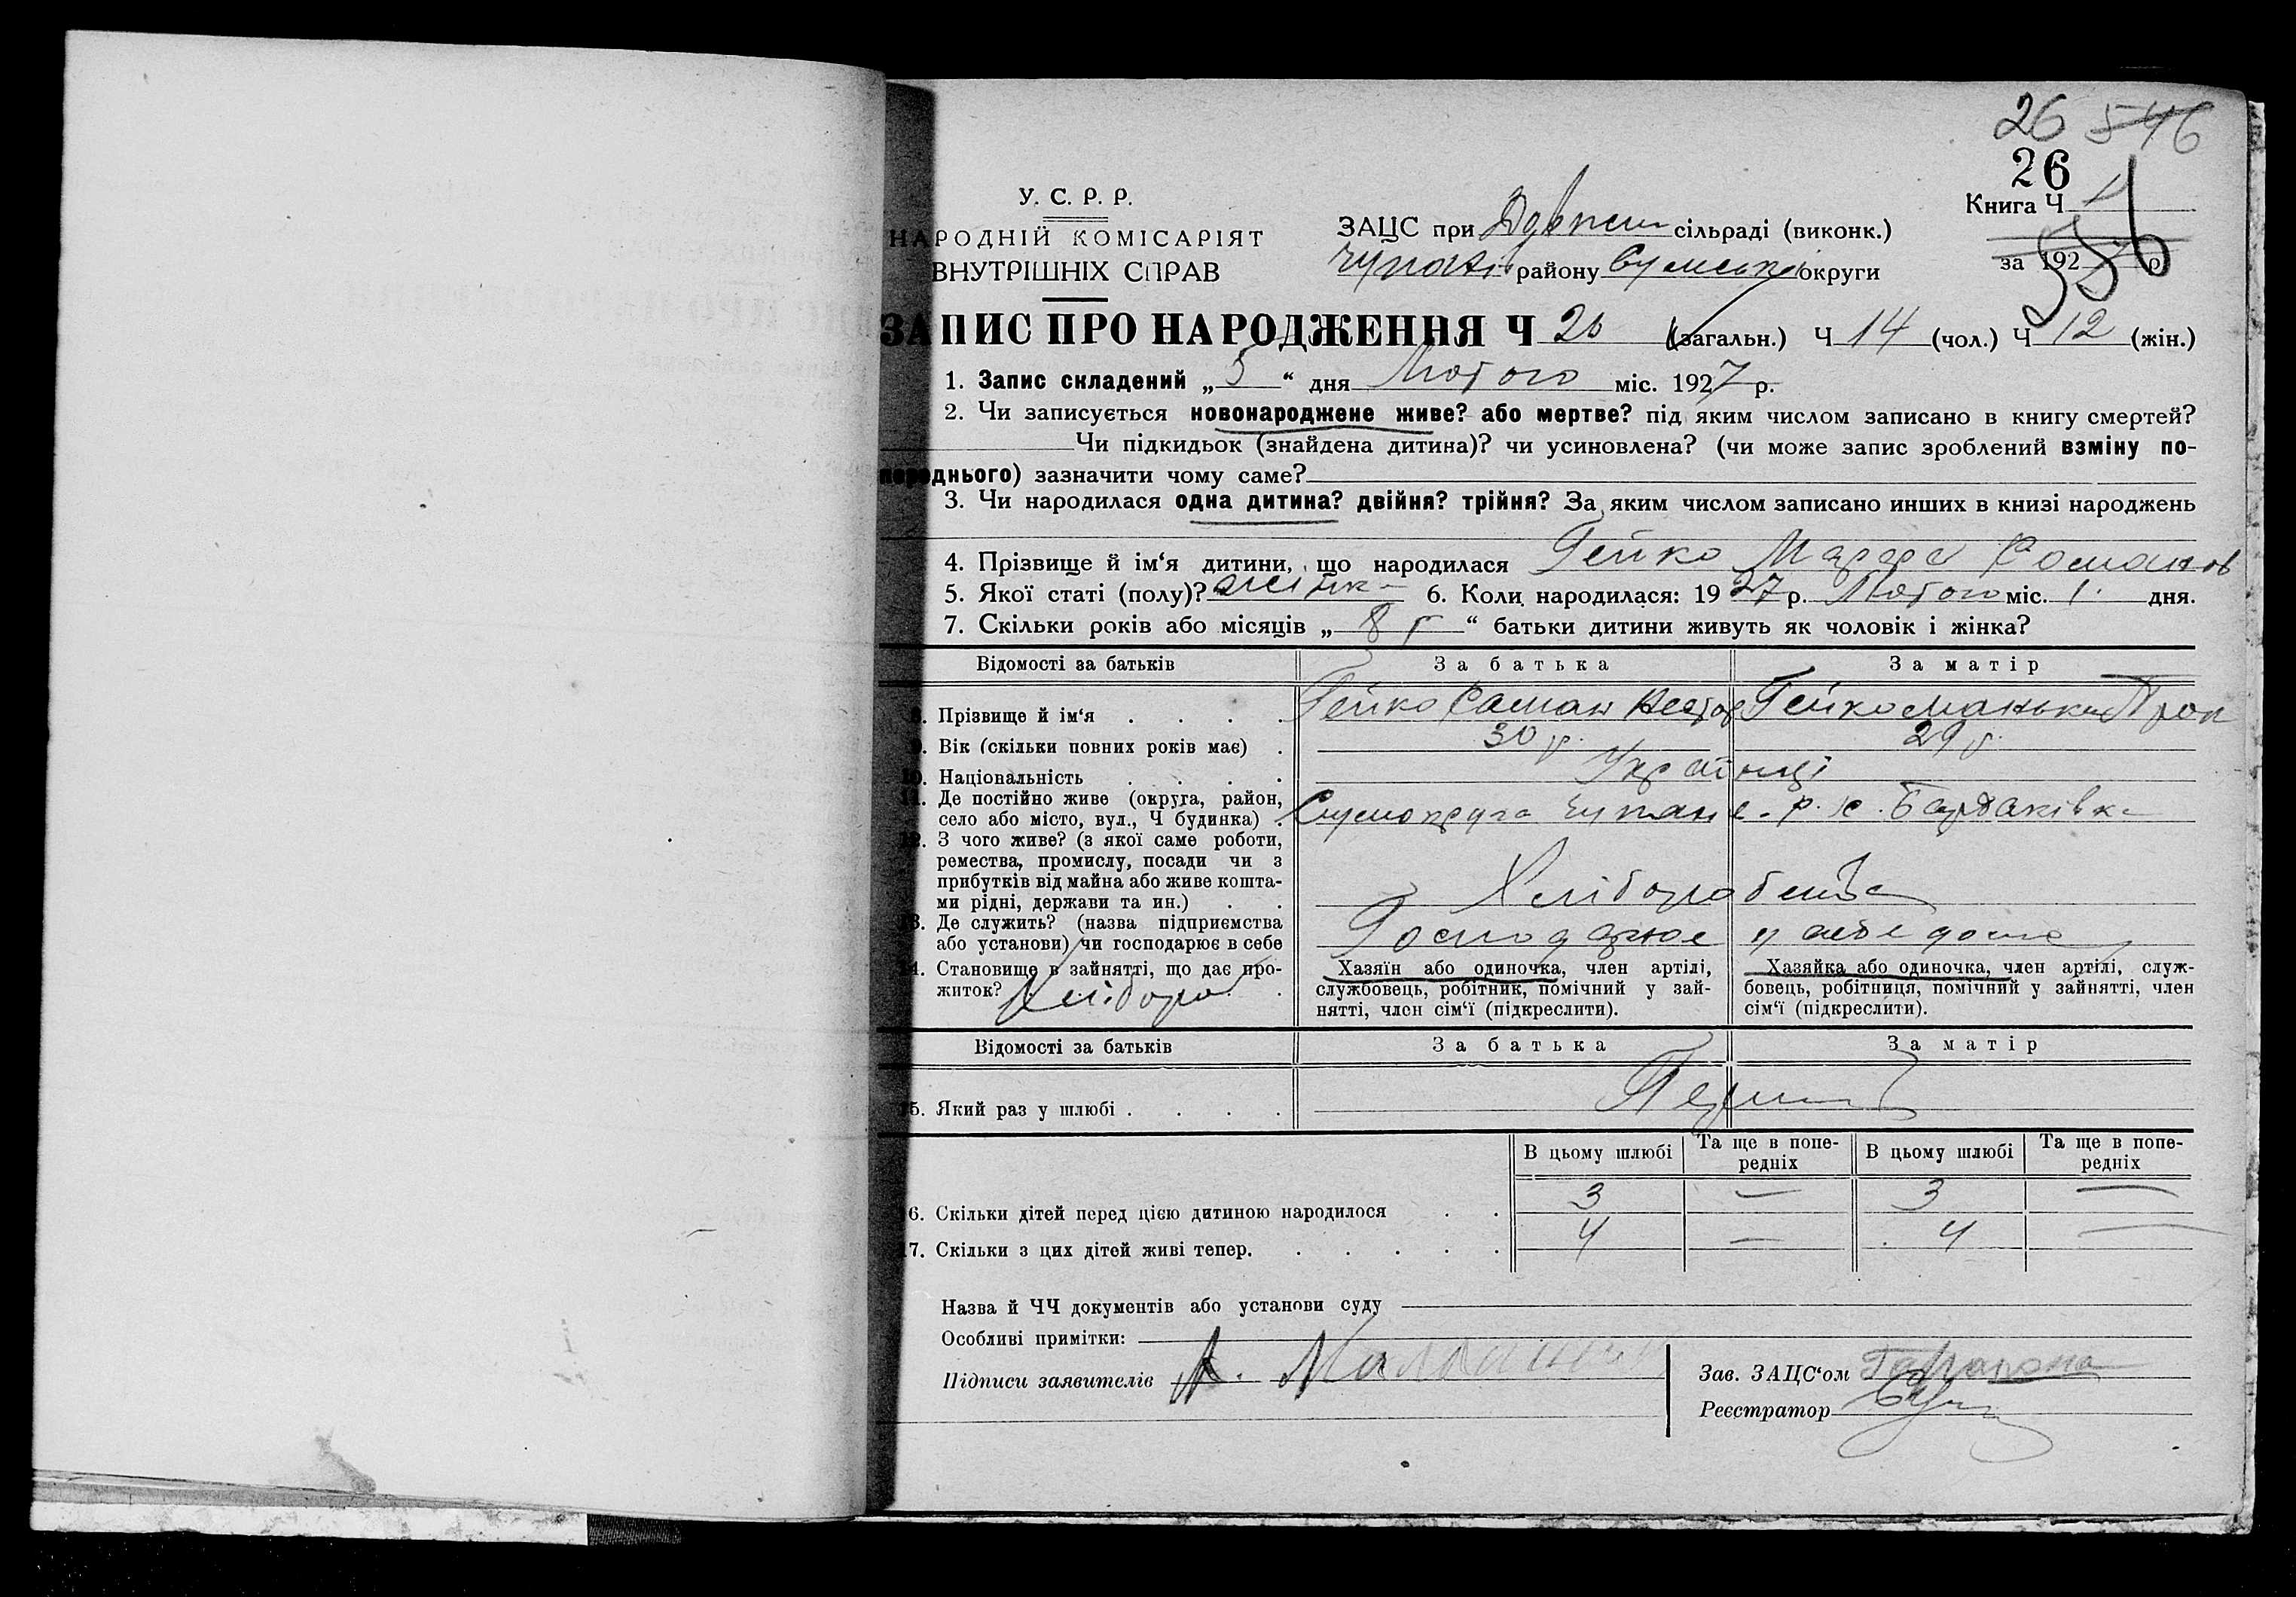 26 546
26
У. С. Р. Р.
Книга Ч 1
НАРОДНІЙ КОМІСАРІЯТ
ЗАЦС при сільраді (виконк.)
ВНУТРІШНІХ СПРАВ
Чупахів району Сумської округи
за 1927 р.
ЗАПИС ПРО НАРОДЖЕННЯ Ч 26 (загальн.) Ч 14 (чол.) Ч 12 (жін.)
1. Запис складений „ 5 “ дня Лютого міс. 1927 р.
2. Чи записується новонароджене живе? або мертве? під яким числом записано в книгу смертей?
Чи підкидьок (знайдена дитина)? чи усиновлена? (чи може запис зроблений взміну по-
переднього) зазначити чому саме?
3. Чи народилася одна дитина? двійня? трійня? За яким числом записано инших в книзі народжень
4. Прізвище й ім‘я дитини, що народилася Гейко Романов
5. Якої статі (полу)? жіпк 6. Коли народилася: 1927 р. Лютого міс. 1 дня.
7. Скільки років або місяців „ 8 г “ батьки дитини живуть як чоловік і жінка?
Відомості за батьків За батька За матір
8. Прізвище й ім‘я . . . . Гейко Роман Нестор Гейко Прок
9. Вік (скільки повних років має) . 30 р. 29 р.
10. Національність . . . . Українці
11. Де постійно живе (округа, район,
село або місто, вул., Ч будинка) . Сумокруга Чупах. р. х.
12. З чого живе? (з якої саме роботи,
ремества, промислу, посади чи з
прибутків від майна або живе кошта-
ми рідні, держави та ин.) . . Хліборобства
13. Де служить? (назва підприємства
або установи) чи господарює в себе Господарює у себе дома
14. Становище в зайнятті, що дає про-
житок? Хлібороб .
Хазяїн або одиночка, член артілі,
службовець, робітник, помічний у зай-
нятті, член сім‘ї (підкреслити).
Хазяйка або одиночка, член артілі, служ-
бовець, робітниця, помічний у зайнятті, член
сім‘ї (підкреслити).
Відомості за батьків За батька За матір
15. Який раз у шлюбі . . . . Перший
В цьому шлюбі Та ще в попе-редніх В цьому шлюбі Та ще в попе-редніх
16. Скільки дітей перед цією дитиною народилося . . 3 — 3 —
17. Скільки з цих дітей живі тепер. . . . . . 4 — 4 —
Назва й ЧЧ документів або установи суду
Особливі примітки:
Підписи заявителів
Зав. ЗАЦС‘ом
Реєстратор